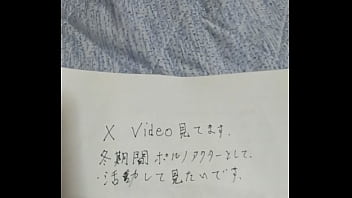 X Video 見てます.
冬期間 ポルノアクターとして.
・活動して見たいです.